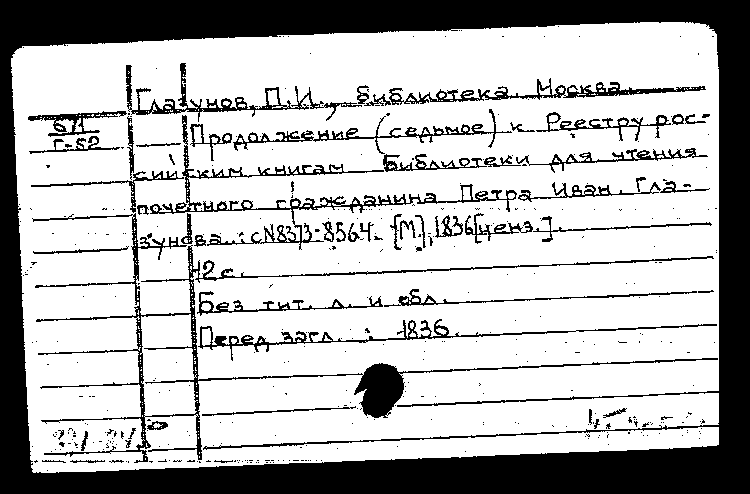 Глазунов, П.И., библиотека. Москва.
671
Г-52
Продолжение (седьмое) к Реестру рос-
сийским книгам Библиотеки для чтения
почетного гражданина Петра Иван. Гла-
зунова..: с N8373-8564. [М], 1836 [ценз.].
42 с.
Без тит. л. и обл.
Перед загл. : 1836.